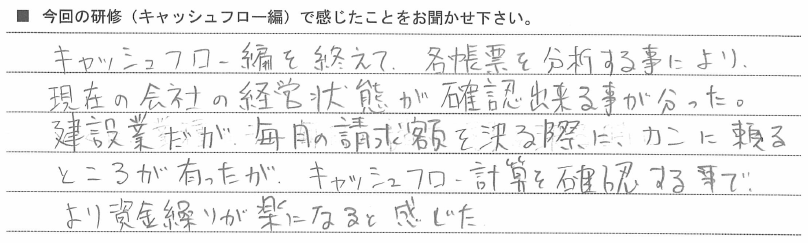 ■ 今回の研修（キャッシュフロー編）で感じたことをお聞かせ下さい。
キャッシュフロー編を終えて、各帳票を分析する事により、
現在の会社の経営状態が確認出来る事が分った。
建設業だが、毎月の請求額を決る際に、カンに頼る
ところが有ったが、キャッシュフロー計算を確認する事で、
より資金繰りが楽になると感じた